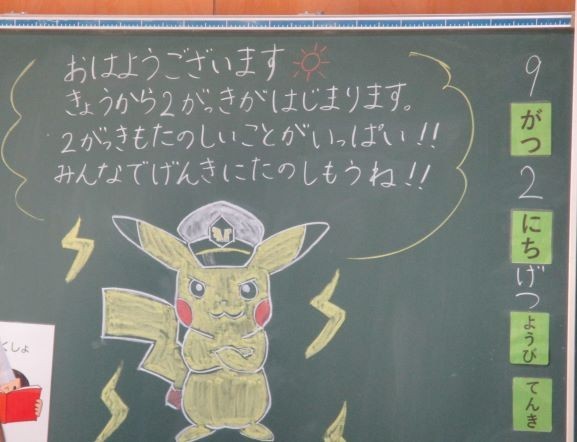 おはようございます
きょうから2がっきがはじまります。
2がっきもたのしいことがいっぱい!!
みんなでげんきにたのしもうね!!
9
がつ
2
にち
げつ
ようび
てんき
くしょ